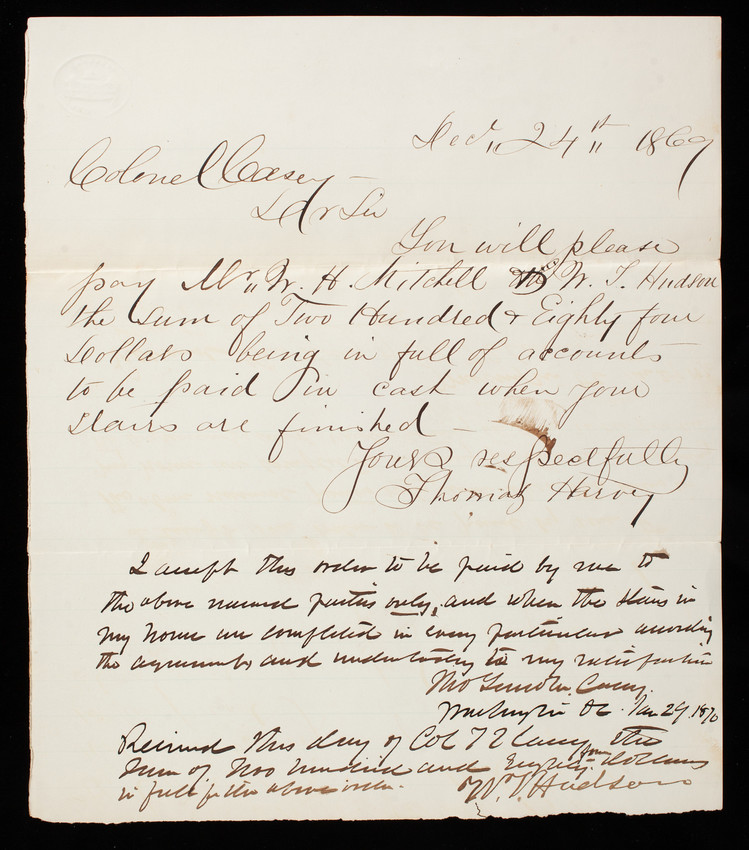 Dec. 24th 1869
Colonel Casey
Dr Sir
You will please
pay Mr. W. H. Mitchell & W. T. Hudson
the sum of Two Hundred & Eighty four
Dollars being in full of accounts
to be paid in cash when your
stairs are finished
Yours respectfully
Thomas Harvey
I accept this order to be paid by me to
the above named parties only, and when the stairs in
my house are completed in every particular according
the agreements and understanding to my satisfaction
Tho Lincoln Casey.
Washington DC. Jan 29. 1870
Received this day of Col T L Casey the
sum of Two hundred and Eighty four Dollars
in full for the above order.
W. T. Hudson